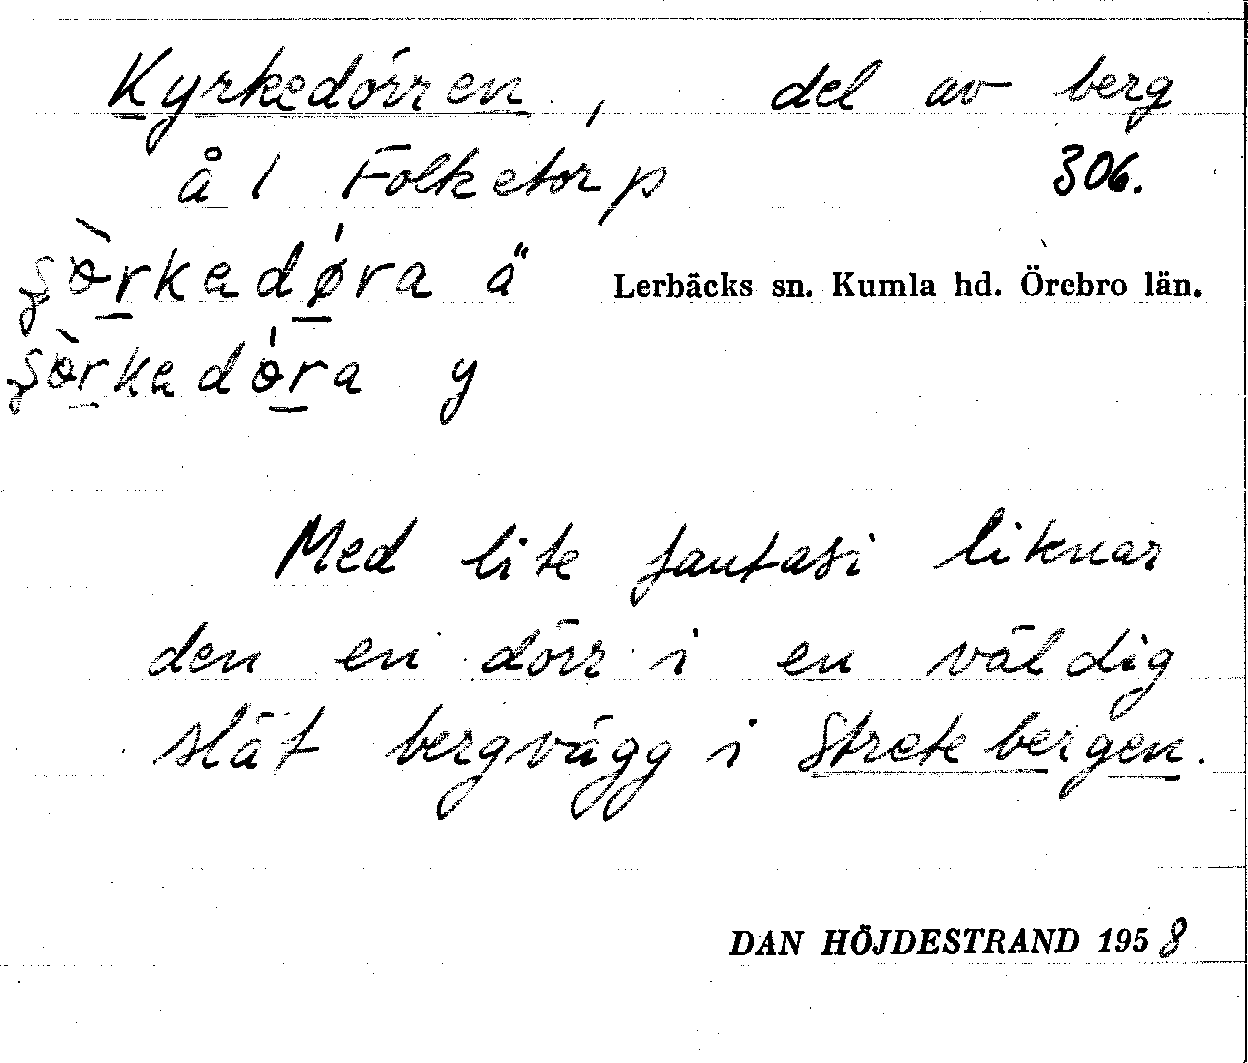 Kyrkedörren, del av berg
å 1 Folketorp 306.
Lerbäcks sn. Kumla hd. Örebro län.
Med lite fantasi liknar
den en dörr i en väldig
slät bergvägg i Stretebergen.
DAN HÖJDESTRAND 1958